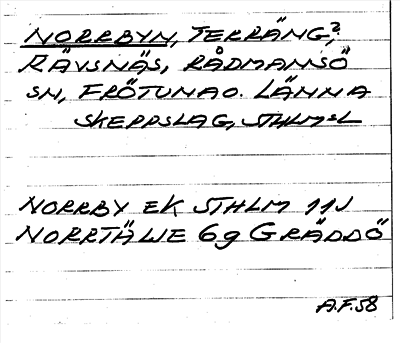 NORRBYN, TERRÄNG,?
RÄVSNÄS, RÅDMANSÖ
SN, FRÖTUNA O. LÄNNA
SKEPPSLAG, STHLMSL
NORRBY EK STHLM 11J
NORRTÄLJE 6g GRÄDDÖ
A.F.58